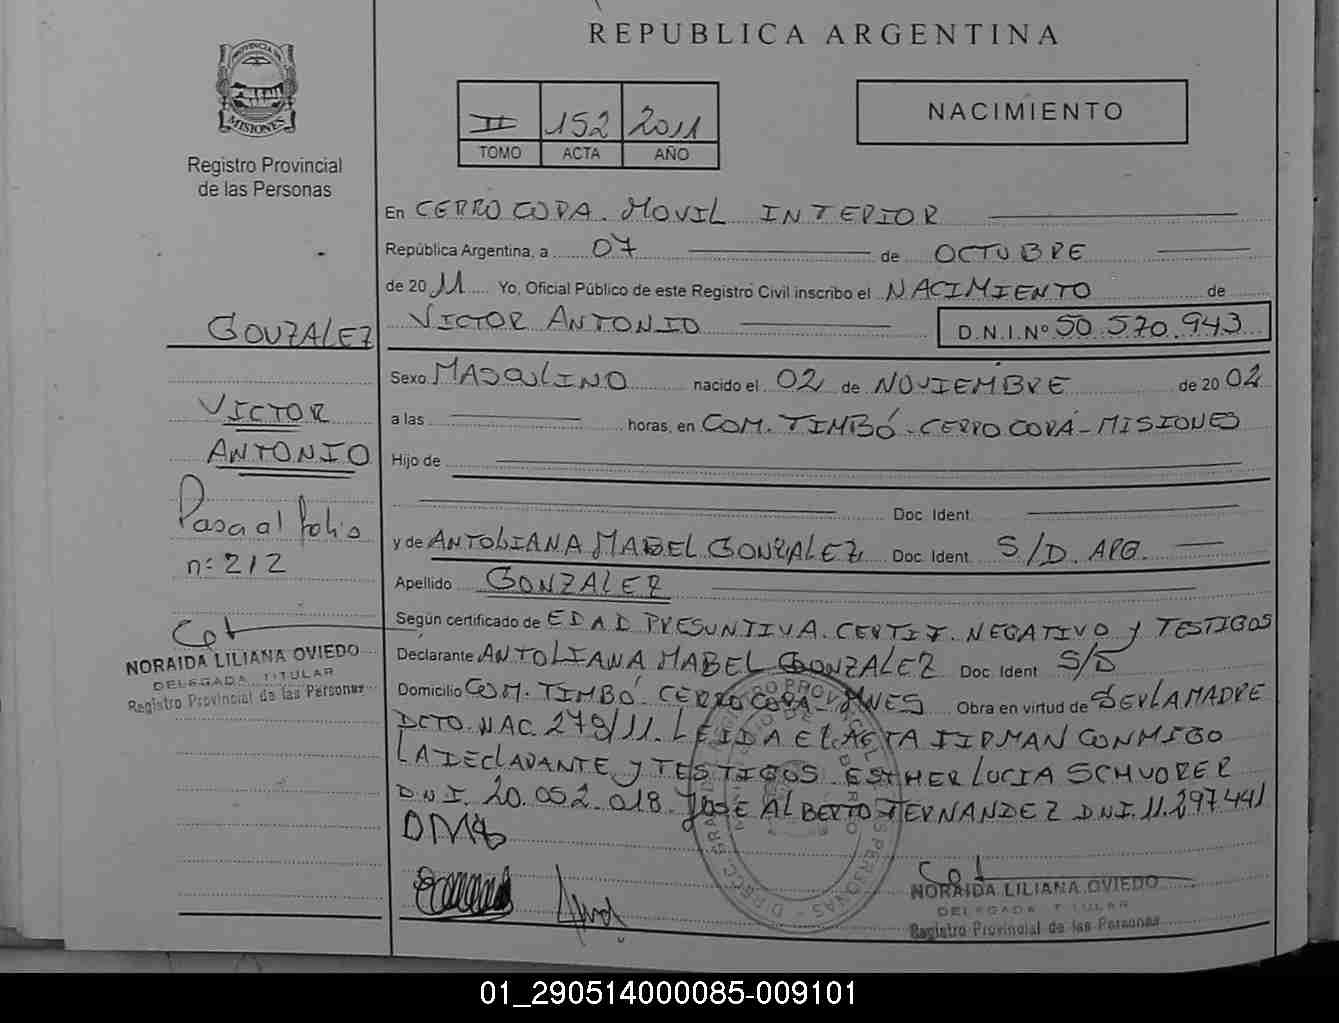 REPUBLICA ARGENTINA
PROVINCIA DE
MISIONES
Registro Provincial
de las Personas
II 152 2011
TOMO ACTA AÑO
NACIMIENTO
En CERRO CORA. MOVIL INTERIOR
República Argentina, a 07 de OCTUBRE
de 2011 Yo, Oficial Público de este Registro Civil inscribo el NACIMIENTO de
VICTOR ANTONIO D.N.I.Nº 50.570.943
GONZALEZ
VICTOR
ANTONIO
Pasa al folio
nº 212
NORAIDA LILIANA OVIEDO
DELEGADA TITULAR
Registro Provincial de las Personas
Sexo MASCULINO nacido el 02 de NOVIEMBRE de 2002
a las horas, en COM. TIMBÓ - CERRO CORÁ - MISIONES
Hijo de
Doc. Ident.
y de ANTOLIANA MABEL GONZALEZ Doc. Ident. S/D. ARG.
Apellido GONZALEZ
Según certificado de EDAD PRESUNTIVA. CERTIF. NEGATIVO y TESTIGOS
Declarante ANTOLIANA MABEL GONZALEZ Doc. Ident S/D
Domicilio COM. TIMBÓ CERRO CORA - MNES Obra en virtud de SER LA MADRE
DCTO. NAC. 279/11. LEIDA EL ACTA FIRMAN CONMIGO
LA DECLARANTE y TESTIGOS ESTHER LUCIA
D.N.I. 20.052.018. JOSE ALBERTO FERNANDEZ D.N.I. 11.297.441
NORAIDA LILIANA OVIEDO
DELEGADA TITULAR
Registro Provincial de las Personas
01_290514000085-009101